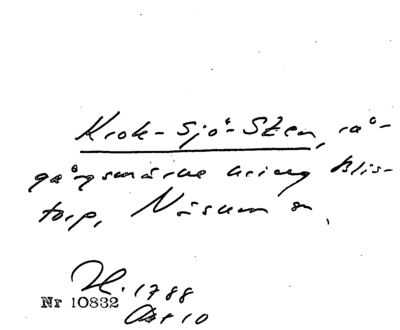 Krok-Sjö-Sten, rå-
gångsmärke kring Blis-
torp, Näsum sn.
H. 1788
Akt 10
Nr 10832